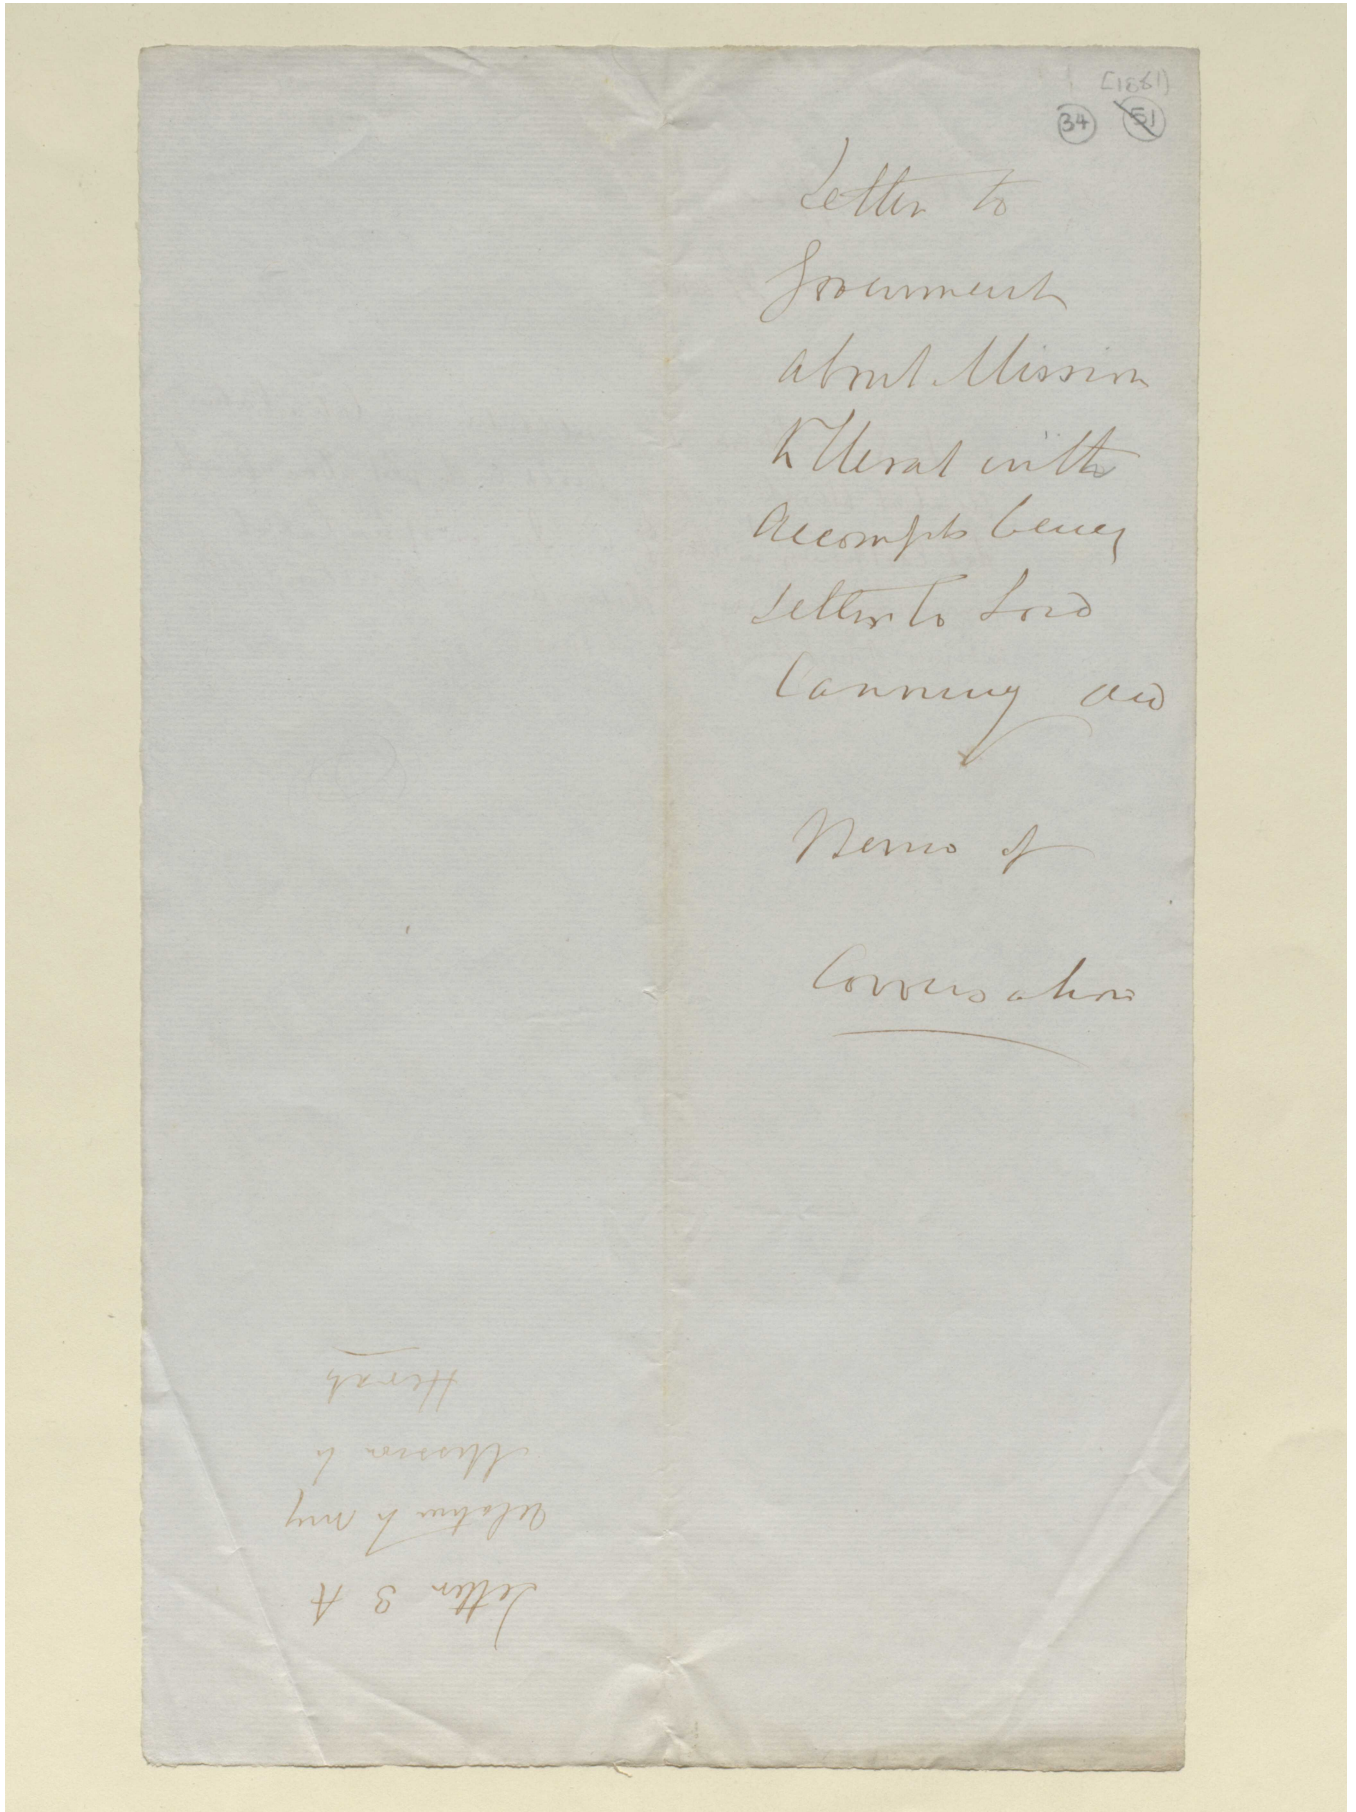 [1861)
34 51
Letter to
Government
about Mission
to Herat with
Accomps being
Letter to Lord
Canning and
Memo of
Conversation
Letter 3 A
relative to my
Mission to
Herat